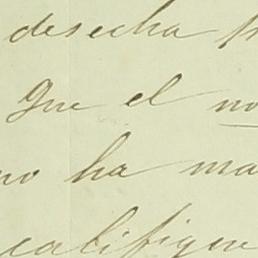 desecha
Que el no
no ha ma
califique